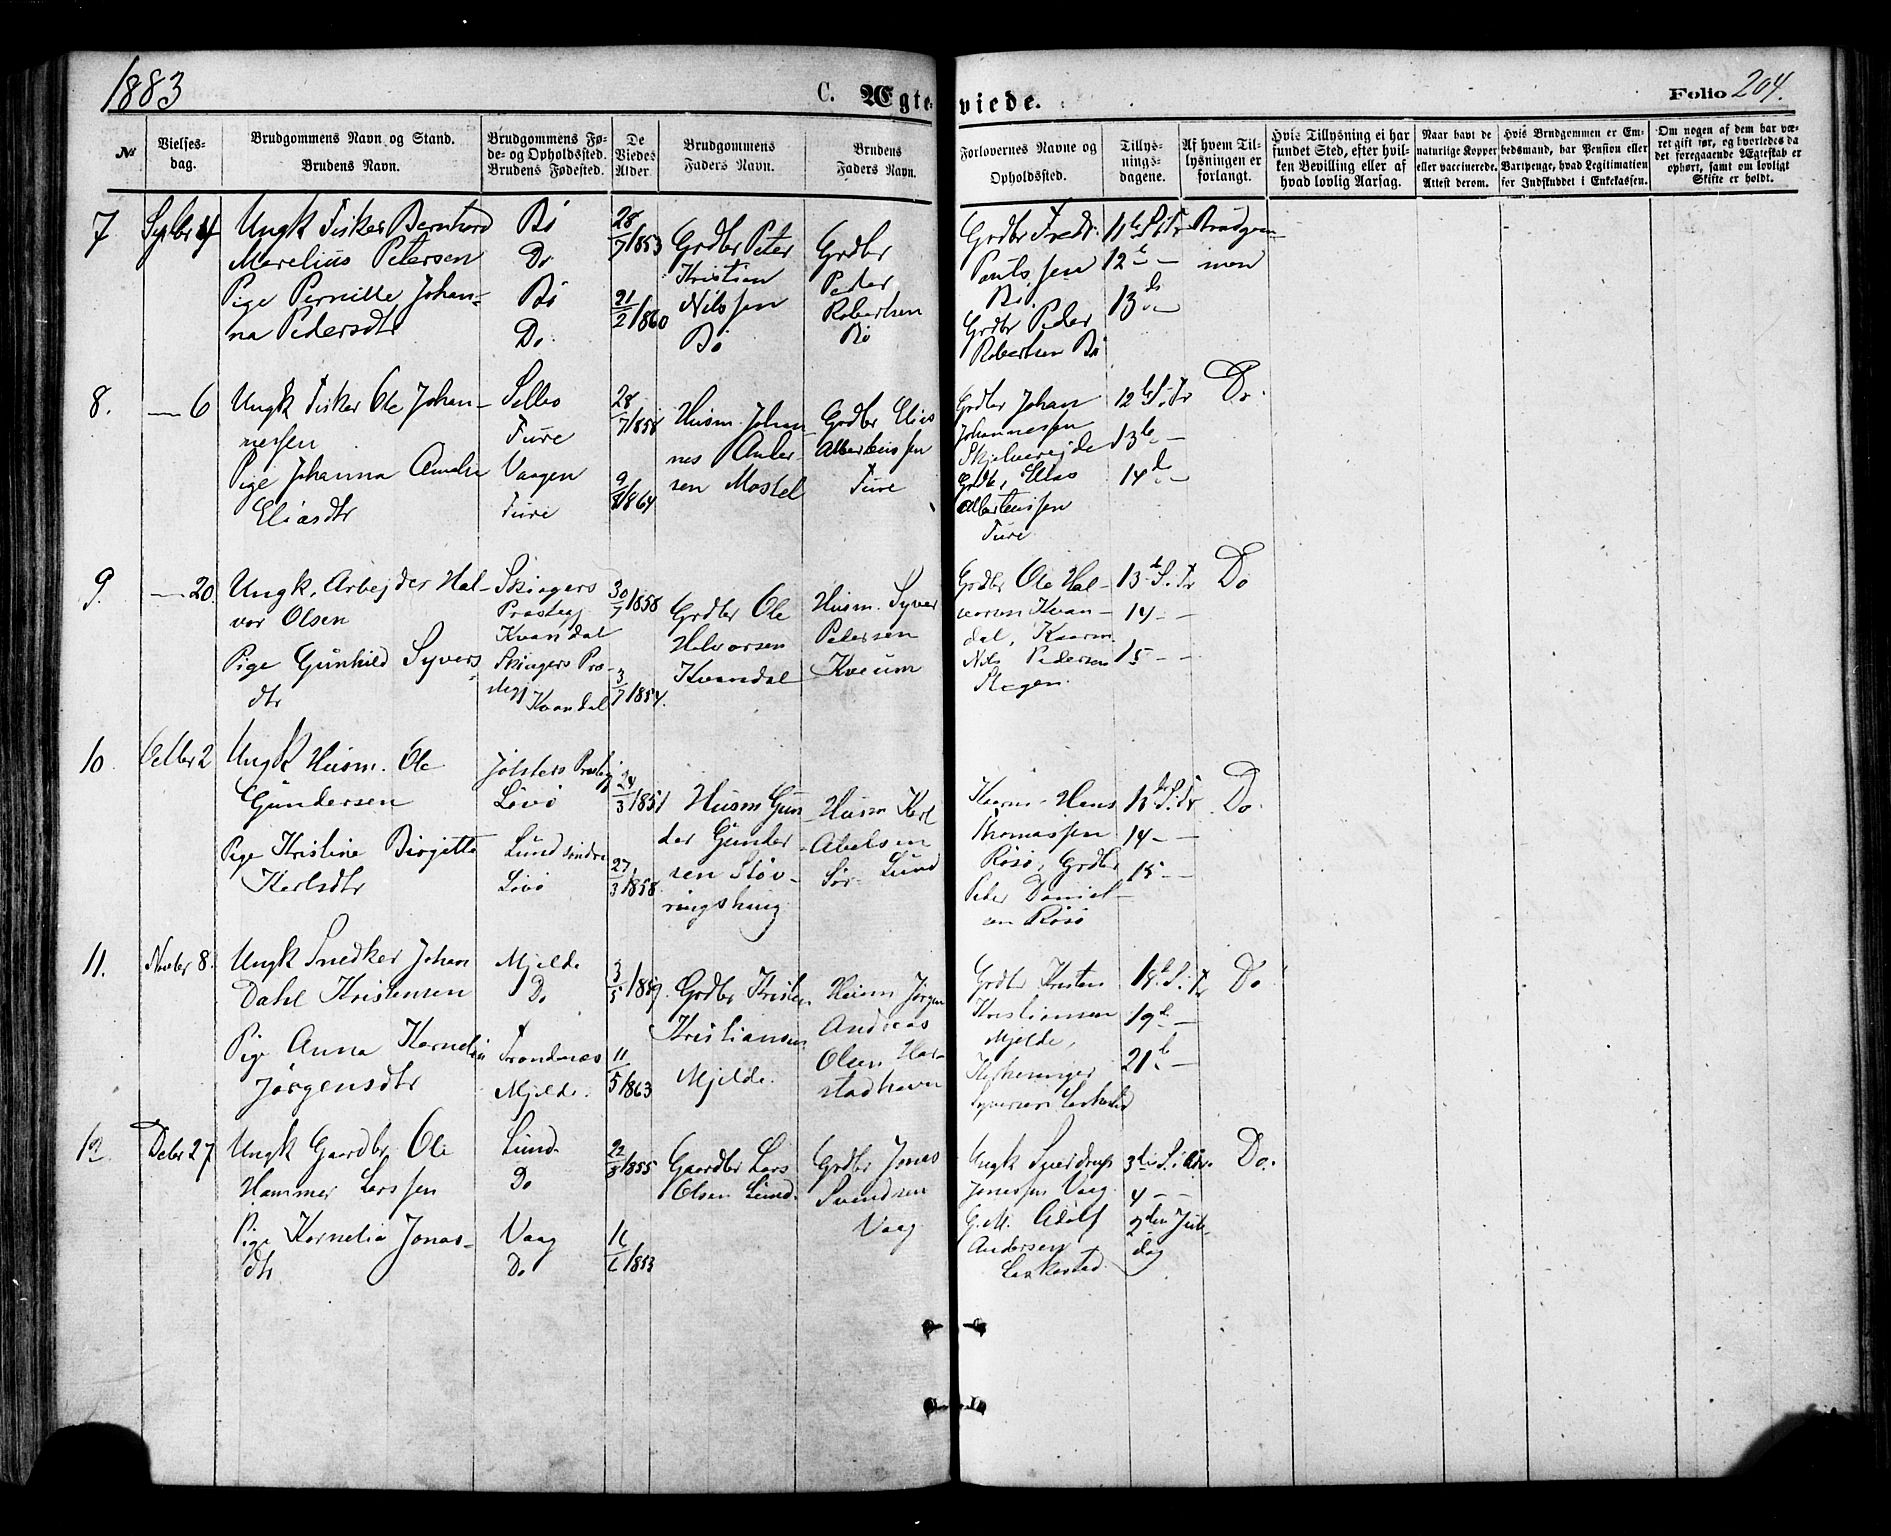 1883
C. Ægte-
viede.
Folio 204.
№
Vielses-
dag.
Brudgommens Navn og Stand.
Brudens Navn.
Brudgommens Fø-
de- og Opholdssted.
Brudens Fødested.
De
Viedes
Alder.
Brudgommens
Faders Navn.
Brudens
Faders Navn.
Forlovernes Navne og
Opholdssted.
Tillys-
nings-
dagene.
Af hvem Til-
lysningen er
forlangt.
Hvis Tillysning ei har
fundet Sted, efter hvil-
ken Bevilling eller af
hvad lovlig Aarsag.
Naar havt de
naturlige Kopper
eller vaccinerede.
Attest derom.
Hvis Brudgommen er Em-
bedsmand, har Pension eller
Vartpenge, hvad Legitimation
for Indskuddet i Enkekassen.
Om nogen af dem har væ-
ret gift før, og hvorledes da
det foregaaende Ægteskab er
ophørt, samt om lovligt
Skifte er holdt.
7
4
Ungk Fisker Bernhard
Marelius Petersen
Pige Pernille Johan-
na Pedersdtr
Bö
Do
Bö
Do.
28/7 1853
21/2 1860
Grdbr Peter
Kristian
Nilssen
Bö
Grdbr
Peder
Robertsen
Bö
Grdbr Fredr.
Bö.
Grdbr Peder
Robertsen Bö
11te S. i Tr
12
13
Brudgom-
men
8.
— 6
Ungk Fisker Ole Johan-
nessen
Pige Johanna Amalie
Eliasdtr
Fure
Vaagen
Fure
28/7 1858
9/8 1864
Husm. Johan-
nes Ander-
sen
Grdbr Elias
Albertenssen
Fure
Grdbr Johan
Johannessen
Grdbr. Elias
Albertenssen
Fure
12te S. i Tr
13
14
Do.
9.
— 20.
Ungk. Arbejder Hal-
vor Olsen
Pige Gunhild Syvers
dtr
Skiagers
Prostegj
Kvandal
Skiagers Pro-
stegj
Kvandal
30/7 1858
3/7 1854.
Grdbr Ole
Halvorsen
Kvandal
Husm. Syver
Petersen
Kveum
Grdbr Ole Hal-
vorsen Kvan-
dal, Kaarm.
Nils Pedersen
13 S. i Tr
14 - -
15 - -
Do
10.
Octbr 2
Ungk Husm. Ole
Gundersen
Pige Kristine Birgitte
Karlsdtr
Jölsters Prestegj
Lövö
Lund söndre
Lövö
24/3 1851
27/3 1858.
Husm Gun-
der Gunder-
sen Stöv-
ringshaug
Husm Karl
Abelsen
Sör-Lund
Kaarm. Hans
Thomassen
Rösö, Grdbr
Peder Daniel-
sen Rösö
13de S. i Tr.
14 - -
15 - -
Do.
11.
Novbr 8.
Ungk Snedker Johan
Dahl Kristensen
Pige Anna Kornelia
Jörgensdtr
Mjelde
Do
Trondenæs
Mjelde.
11/5 1863
Grdbr Kristen
Kristiansen
Mjelde.
Husm Jörgen
Andreas
Olsen Har-
stadhavn
Grdbr Kristen
Kristiansen
Mjelde,
18 S. i Tr
19
21
Do
12.
Decbr 27
Ungk Gaardbr. Ole
Hammer Larssen
Pige Kornelia Jonas-
dtr
Lund
Do
Vaag
Do
22/8 1855
Gaardbr Lars
Olsen Lund.
Grdbr Jonas
Svendsen
Vaag
Ungk Sverdrup
Jonassen Vaag
G.M. Adolf
Andersen
Laskestad.
3die S. i Adv.
4 - -
2den Jule-
dag
Do.